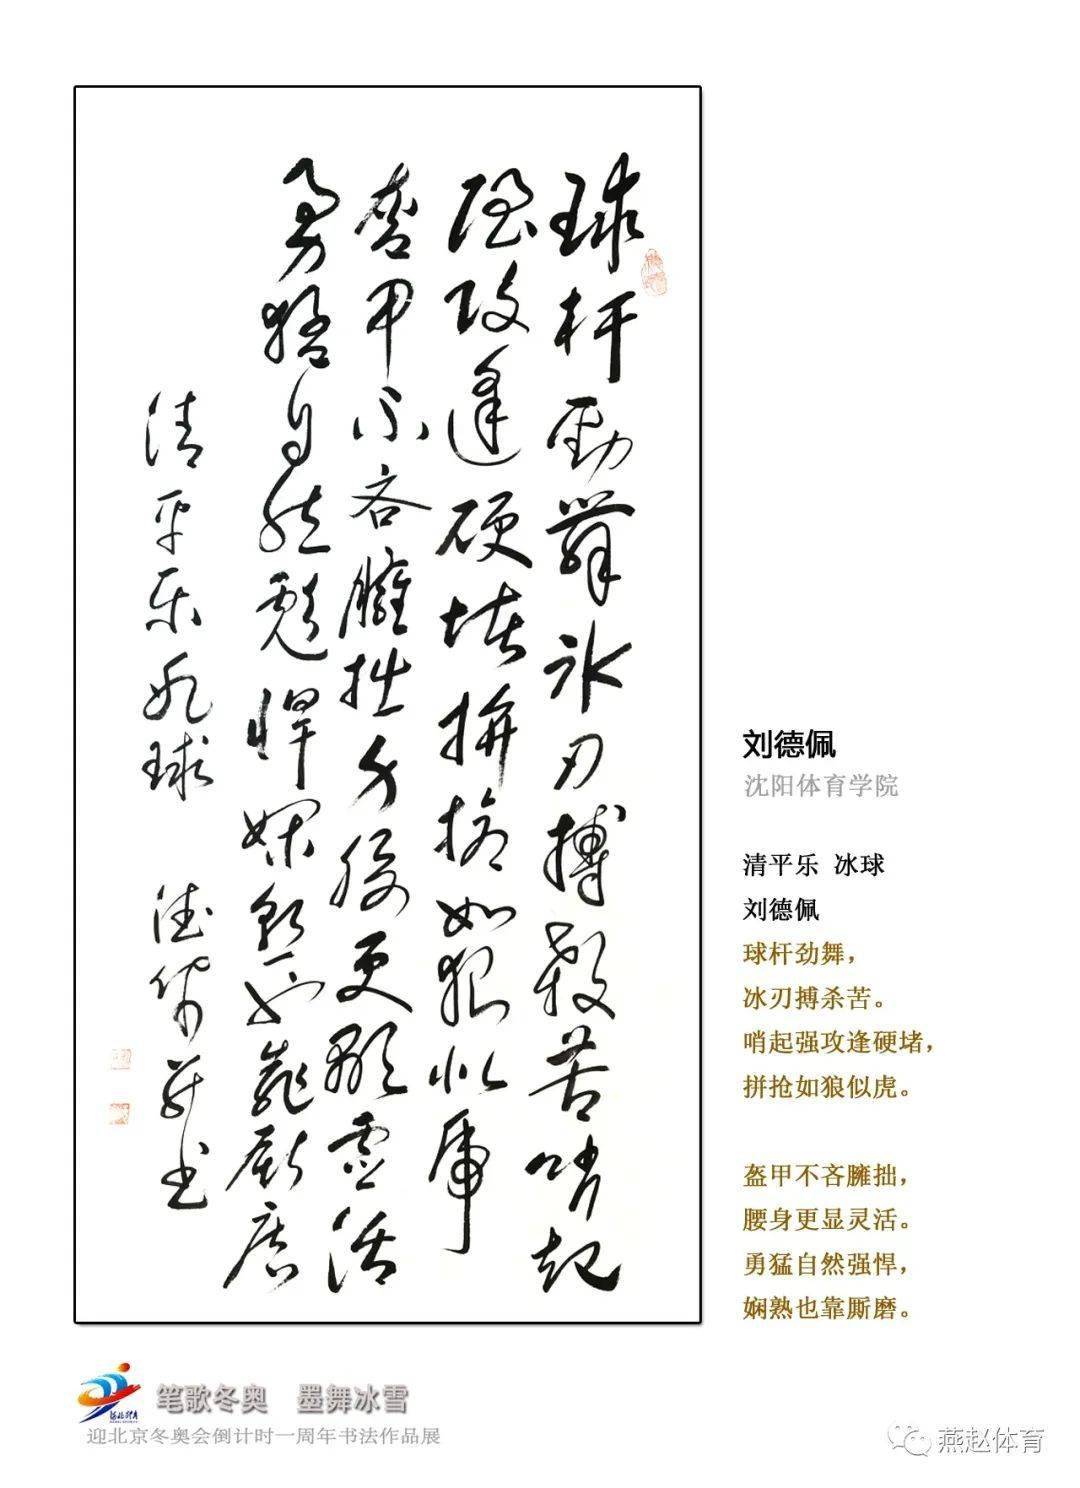 球杆勁舞氷刃搏殺苦哨起
强攻逢硬堵拼搶如狼似虎
盔甲不吝臃拙身腰更顯靈活
勇猛自然彪悍娴熟也靠厮磨
清平乐冰球 德佩并书
刘德佩
沈阳体育学院
清平乐 冰球
刘德佩
球杆劲舞，
冰刃搏杀苦。
哨起强攻逢硬堵，
拼抢如狼似虎。
盔甲不吝臃拙，
腰身更显灵活。
勇猛自然强悍，
娴熟也靠厮磨。
河北体育
笔歌冬奥 墨舞冰雪
迎北京冬奥会倒计时一周年书法作品展
燕赵体育